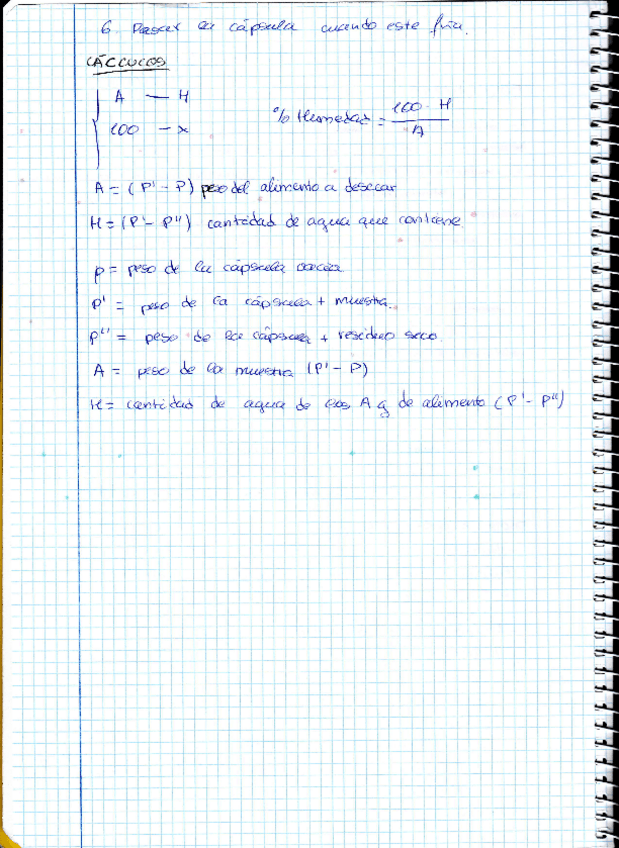 6. Pesar la cápsula cuando este fría.
CÁLCULOS
A — H
100 — x
% Humedad = 100 · H / A
A = (P' - P) peso del alimento a desecar
H = (P' - P'') cantidad de agua que contiene
P = peso de la cápsula vacía
P' = peso de la cápsula + muestra.
P'' = peso de la cápsula + residuo seco.
A = peso de la muestra (P' - P)
H = cantidad de agua de los A g de alimento (P' - P'')